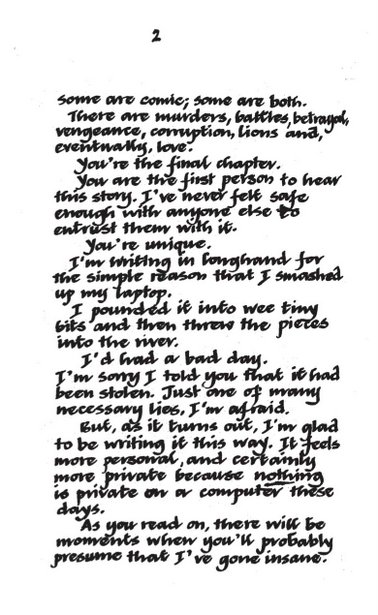 2
some are comic; some are both.
There are murders, battles, betrayal,
vengeance, corruption, lions and,
eventually, love.
You're the final chapter.
You are the first person to hear
this story. I've never felt safe
enough with anyone else to
entrust them with it.
You're unique.
I'm writing in longhand for
the simple reason that I smashed
up my laptop.
I pounded it into wee tiny
bits and then threw the pieces
into the river.
I'd had a bad day.
I'm sorry I told you that it had
been stolen. Just one of many
necessary lies, I'm afraid.
But, as it turns out, I'm glad
to be writing it this way. It feels
more personal, and certainly
more private because nothing
is private on a computer these
days.
As you read on, there will be
moments when you'll probably
presume that I've gone insane.